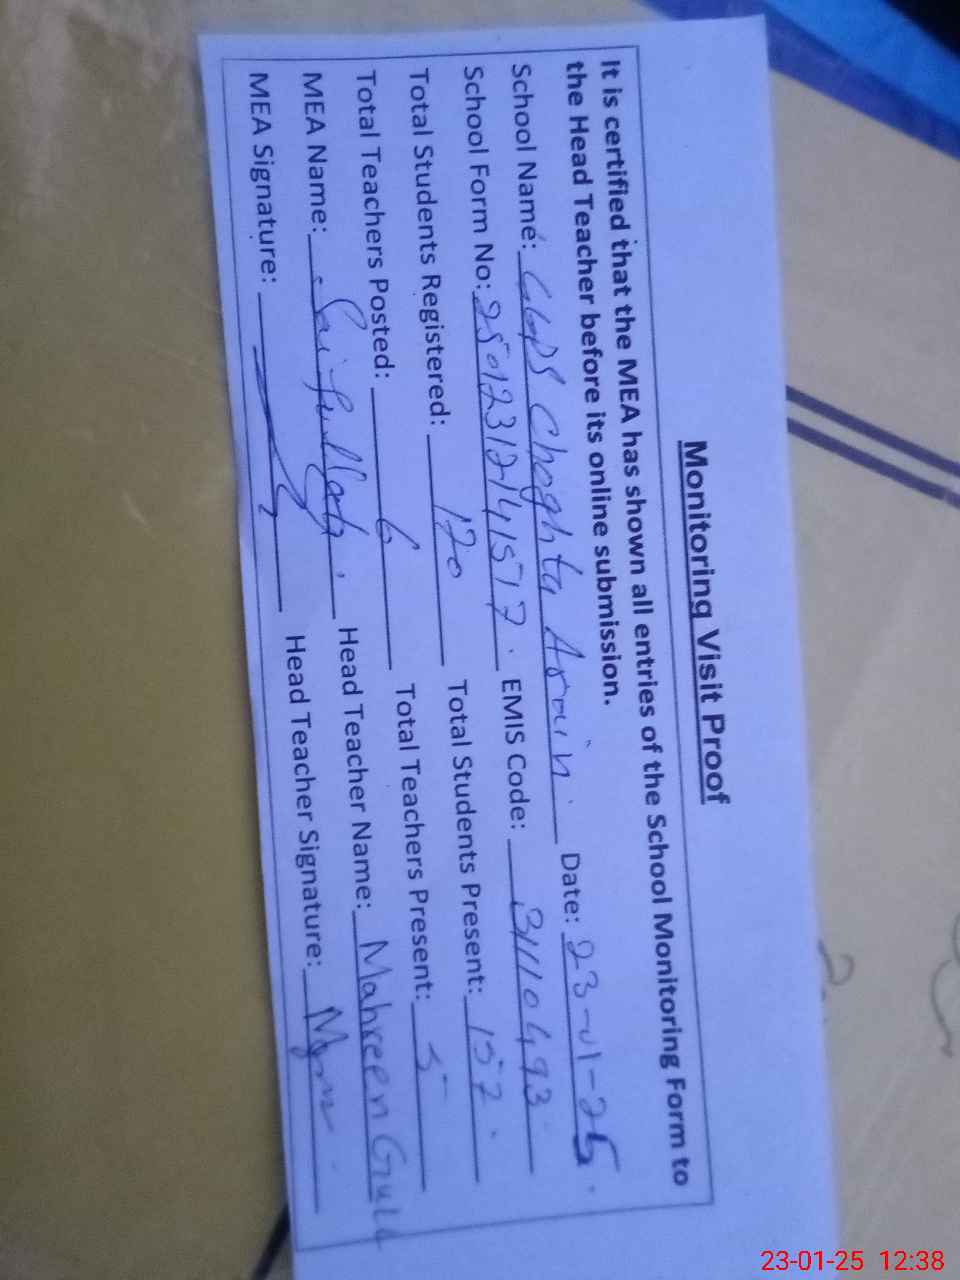 Monitoring Visit Proof
It is certified that the MEA has shown all entries of the School Monitoring Form to
the Head Teacher before its online submission.
School Name: GGPS Choghta Arain. Date: 23-01-25.
School Form No: 250123121414517. EMIS Code: 31110493
Total Students Registered: 170 Total Students Present: 157.
Total Teachers Posted: 6 Total Teachers Present: 5
MEA Name: Saifullah. Head Teacher Name: Mahreen Gull
MEA Signature: Head Teacher Signature:
23-01-25 12:38